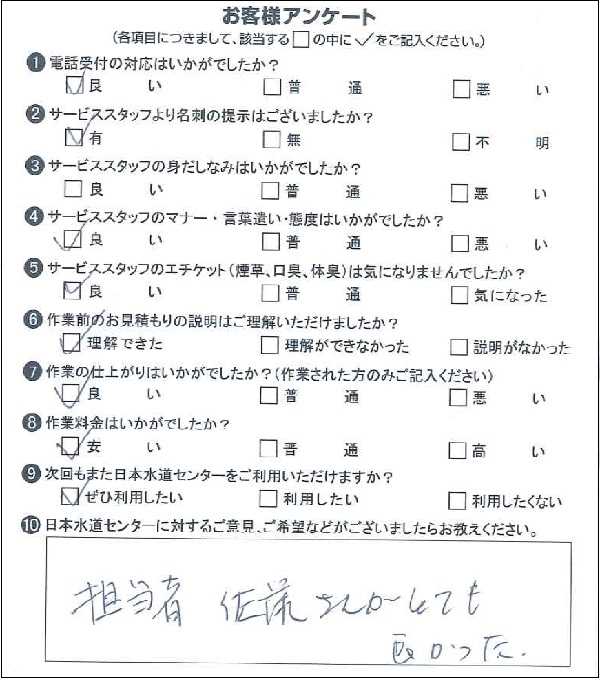 お客様アンケート
(各項目につきまして、該当する□の中に✓をご記入ください。)
❶ 電話受付の対応はいかがでしたか?
☑ 良い □ 普通 □ 悪い
❷ サービススタッフより名刺の提示はございましたか?
☑ 有 □ 無 □ 不明
❸ サービススタッフの身だしなみはいかがでしたか?
□ 良い □ 普通 □ 悪い
❹ サービススタッフのマナー・言葉遣い・態度はいかがでしたか?
☑ 良い □ 普通 □ 悪い
❺ サービススタッフのエチケット(煙草、口臭、体臭)は気になりませんでしたか?
☑ 良い □ 普通 □ 気になった
❻ 作業前のお見積もりの説明はご理解いただけましたか?
☑ 理解できた □ 理解ができなかった □ 説明がなかった
❼ 作業の仕上がりはいかがでしたか?(作業された方のみご記入ください)
☑ 良い □ 普通 □ 悪い
❽ 作業料金はいかがでしたか?
☑ 安い □ 普通 □ 高い
❾ 次回もまた日本水道センターをご利用いただけますか?
☑ ぜひ利用したい □ 利用したい □ 利用したくない
❿ 日本水道センターに対するご意見、ご希望などがございましたらお教えください。
担当者 さんがとても
良かった。